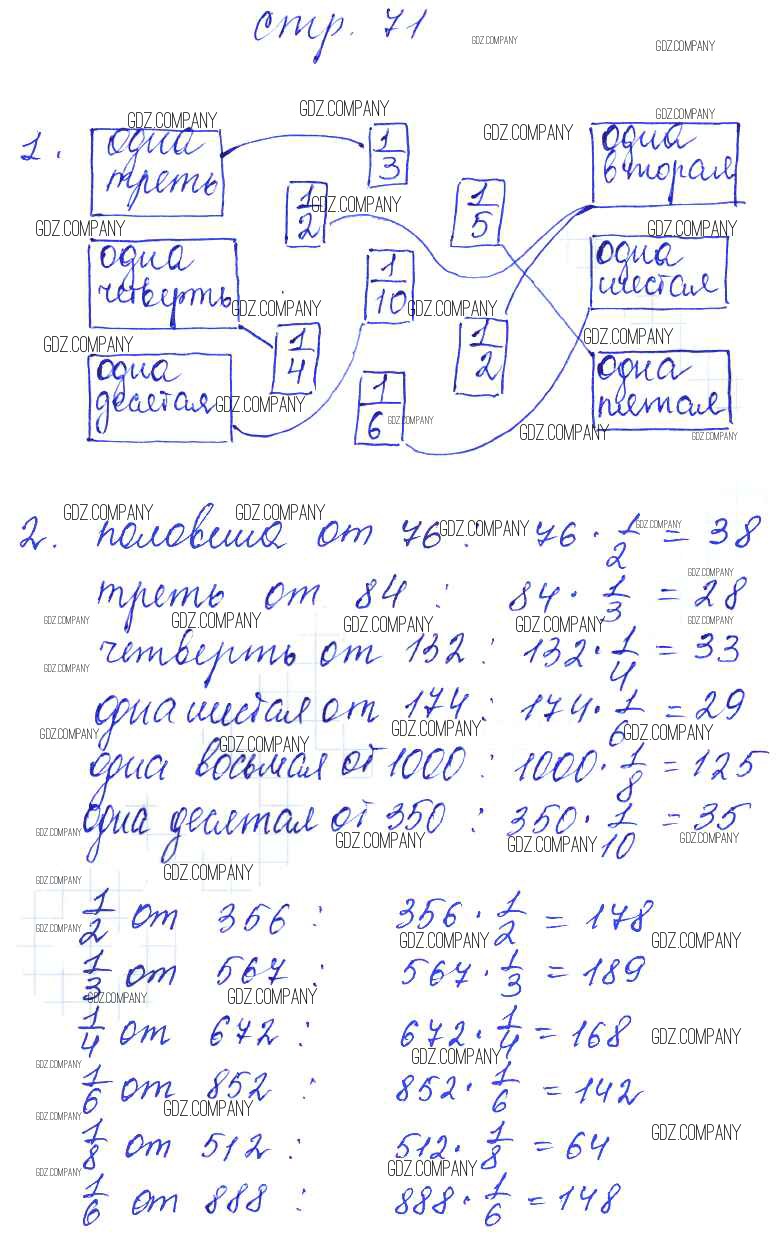 стр. 71
1.
одна
треть
1/3
1/2
1/5
одна
вторая
одна
четверть
1/10
одна
шестая
1/4
1/2
одна
десятая
1/6
одна
пятая
2. половина от 76 : 76 · 1/2 = 38
треть от 84 : 84 · 1/3 = 28
четверть от 132 : 132 · 1/4 = 33
одна шестая от 174 : 174 · 1/6 = 29
одна восьмая от 1000 : 1000 · 1/8 = 125
одна десятая от 350 : 350 · 1/10 = 35
1/2 от 356 : 356 · 1/2 = 178
1/3 от 567 : 567 · 1/3 = 189
1/4 от 672 : 672 · 1/4 = 168
1/6 от 852 : 852 · 1/6 = 142
1/8 от 512 : 512 · 1/8 = 64
1/6 от 888 : 888 · 1/6 = 148
GDZ.COMPANY